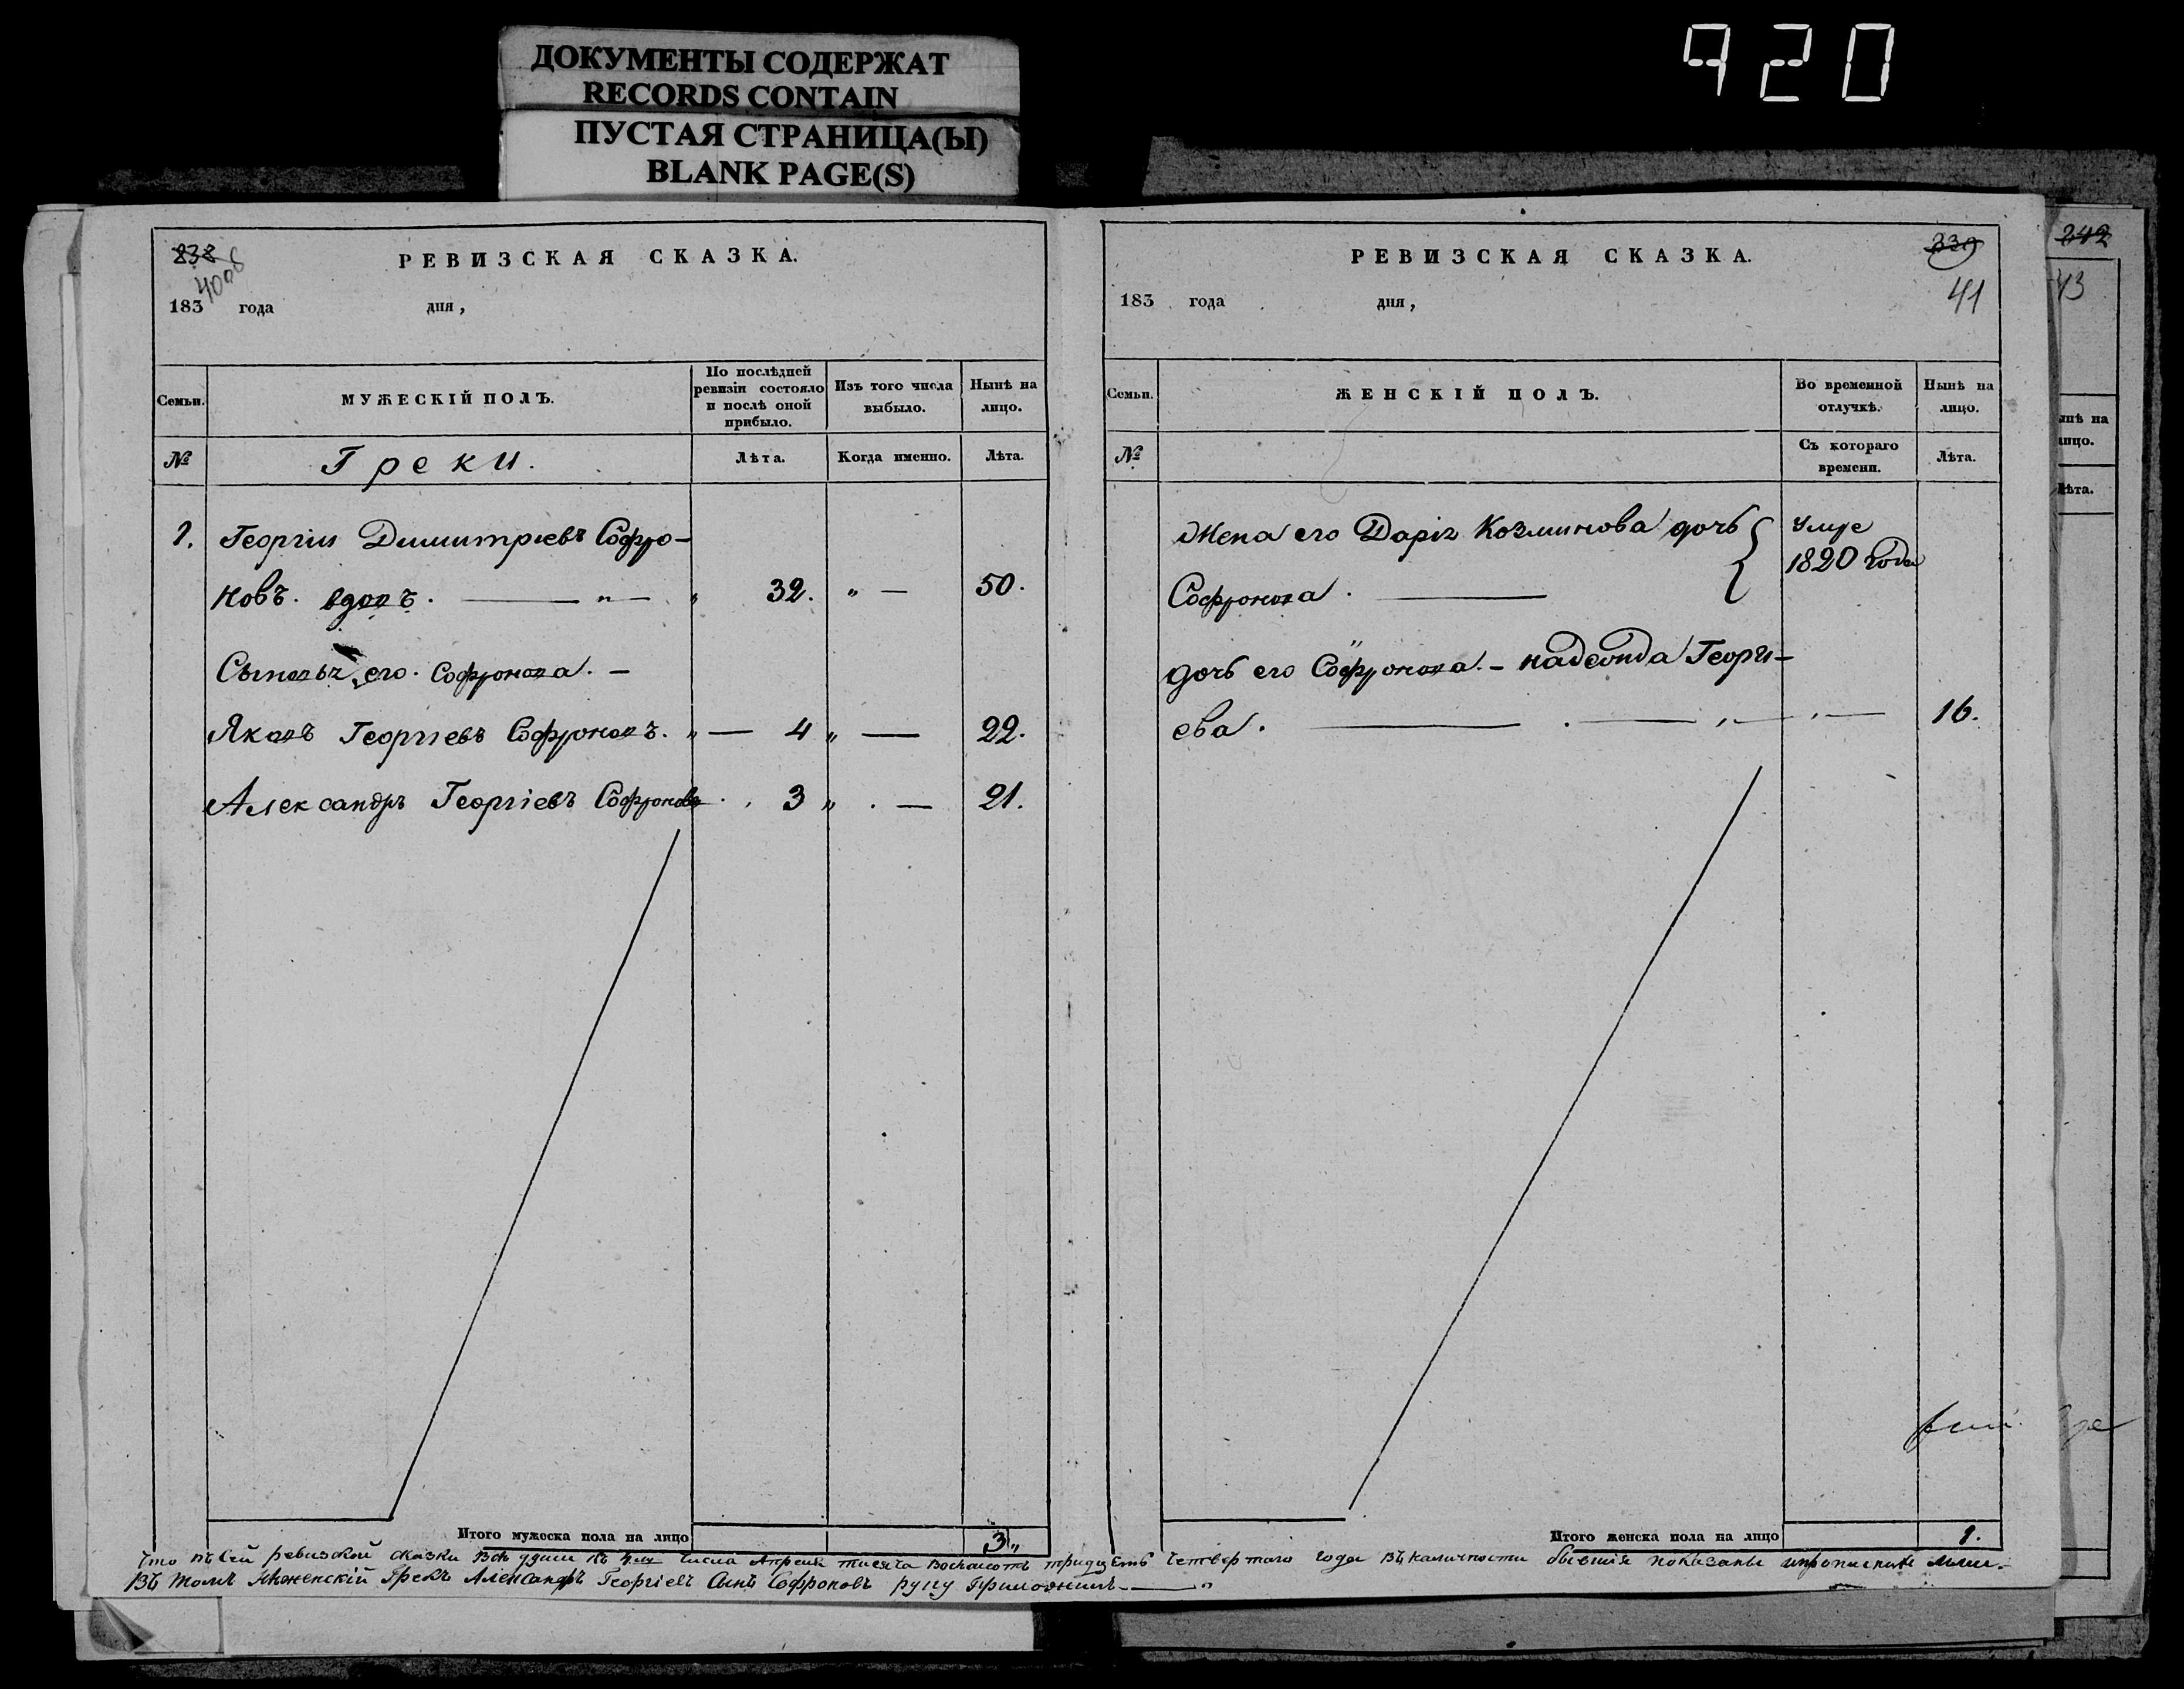 920
ДОКУМЕНТЫ СОДЕРЖАТ
RECORDS CONTAIN
ПУСТАЯ СТРАНИЦА(Ы)
BLANK PAGE(S)
838
40об
РЕВИЗСКАЯ СКАЗКА.
183 года дня,
Семьи.
МУЖЕСКІЙ ПОЛЪ.
По послѣдней ревизіи состояло и послѣ оной прибыло.
Изъ того числа выбыло.
Нынѣ на лицо.
№
Греки.
Лѣта.
Когда именно.
Лѣта.
1. Георгіи Димитріевъ Софро-
новъ. вдовъ. — „ — „ 32. „ — 50.
Сыновья его. Софронова. —
Яковъ Георгіевъ Софроновъ. „ — 4 „ — 22.
Александръ Георгіевъ Софроновъ . . 3 „ . — 21.
Итого мужеска пола на лицо 3„
РЕВИЗСКАЯ СКАЗКА.
839
41
183 года дня,
Семьи.
ЖЕНСКІЙ ПОЛЪ.
Во временной отлучкѣ.
Нынѣ на лицо.
№
Съ котораго времени.
Лѣта.
Жена его Дарія Козминова дочь
Софронова. —
умре
1820 года
дочь его Софронова. – надежда Георги-
ева. — . — „ — „ — 16.
Итого женска пола на лицо 1.
что въ сей ревизской сказки всѣ души къ числа Апреля тысяча восемьсотъ тридцать четвертаго года въ наличности бывшія показаны
Въ томъ Нѣженскій Грекъ Александръ Георгіевъ Сынъ Софроновъ руку Приложилъ — „
242
43
нѣ на
лицо.
Лѣта.